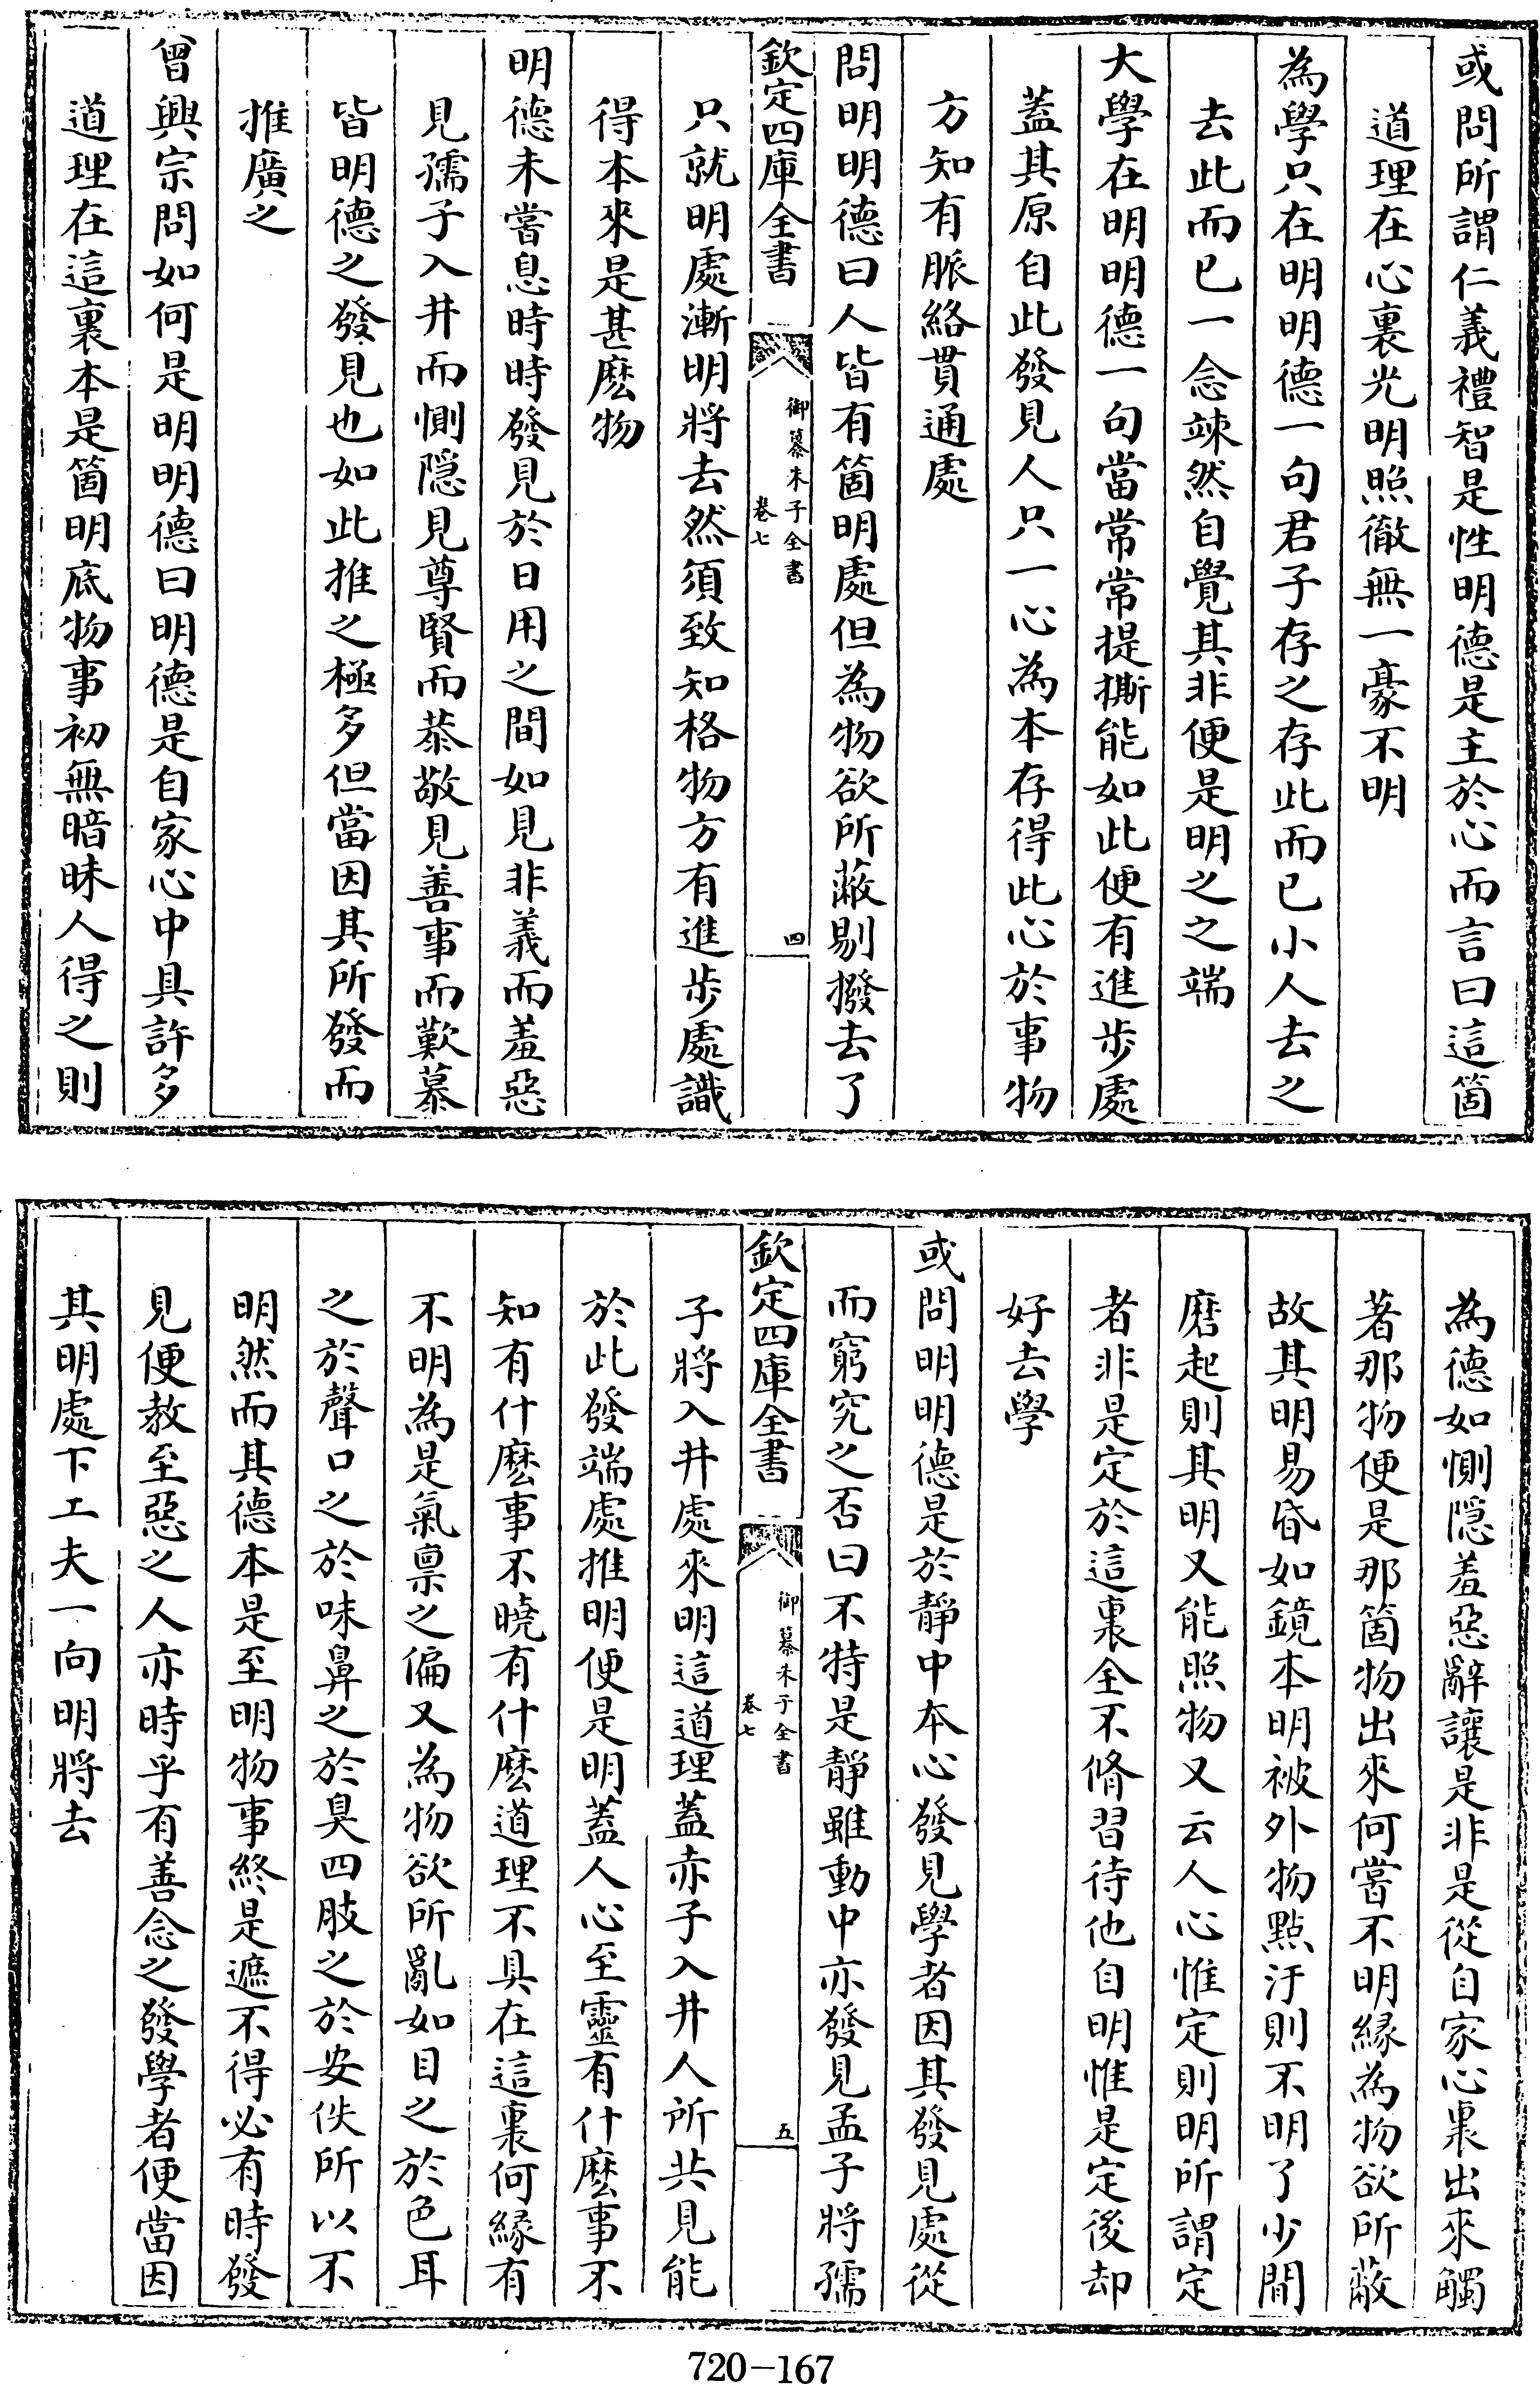 或問所謂仁義禮智是性明德是主於心而言曰這箇
道理在心裏光明照徹無一豪不明
為學只在明明德一句君子存之存此而已小人去之
去此而已一念竦然自覺其非便是明之之端
大學在明明德一句當常常提撕能如此便有進步處
蓋其原自此發見人只一心為本存得此心於事物
方知有脈絡貫通處
問明明德曰人皆有箇明處但為物欲所蔽剔撥去了
欽定四庫全書
御纂朱子全書
卷七
四
只就明處漸明將去然須致知格物方有進步處識
得本來是甚麽物
明德未嘗息時時發見於日用之間如見非義而羞惡
見孺子入井而惻隠見尊賢而恭敬見善事而歎慕
皆明德之發見也如此推之極多但當因其所發而
推廣之
曾興宗問如何是明明德曰明德是自家心中具許多
道理在這裏本是箇明底物事初無暗昧人得之則
為德如惻隠羞惡辭讓是非是從自家心裏出來觸
著那物便是那箇物出來何嘗不明緣為物欲所蔽
故其明易昏如鏡本明被外物點汙則不明了少間
磨起則其明又能照物又云人心惟定則明所謂定
者非是定於這裏全不脩習待他自明惟是定後却
好去學
或問明明德是於靜中本心發見學者因其發見處從
而窮究之否曰不特是靜雖動中亦發見孟子將孺
欽定四庫全書
御纂朱子全書
卷七
五
子將入井處來明這道理蓋赤子入井人所共見能
於此發端處推明便是明蓋人心至靈有什麽事不
知有什麽事不曉有什麽道理不具在這裏何緣有
不明為是氣禀之偏又為物欲所亂如目之於色耳
之於聲口之於味鼻之於臭四肢之於安佚所以不
明然而其德本是至明物事終是遮不得必有時發
見便教至惡之人亦時乎有善念之發學者便當因
其明處下工夫一向明將去
720-167